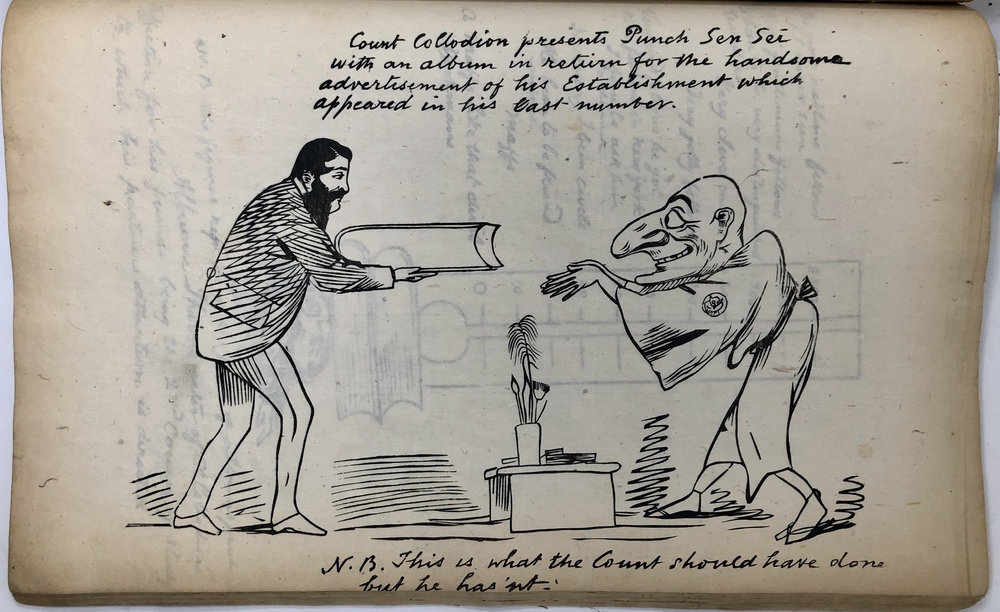 Count Collodion presents Punch Sen Sei
with an album in return for the handsome
advertisement of his Establishment which
appeared in his last number.
N.B. This is what the Count should have done
but he has'nt: